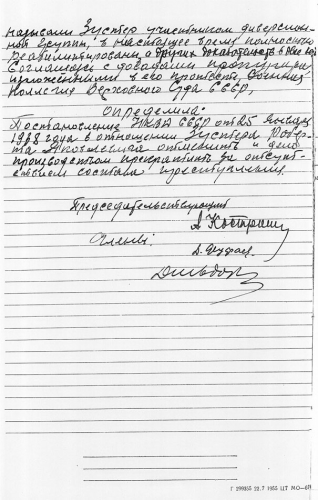 названы Зустер участником диверсион-
ной группы, в настоящее время полностью
реабилитированы, а других доказательств в деле нет
Соглашаясь с доводами прокурора
изложенными в его протесте, Военная
Коллегия Верховного Суда СССР,
определила:
Постановление НКВД СССР от 25 января
1938 года в отношении Зустера Робер-
та Яковлевича отменить и дело
производством прекратить за отсут-
ствием состава преступления.
Председательствующий
Члены:
Г 199355 22.7 1955 ЦТ МО